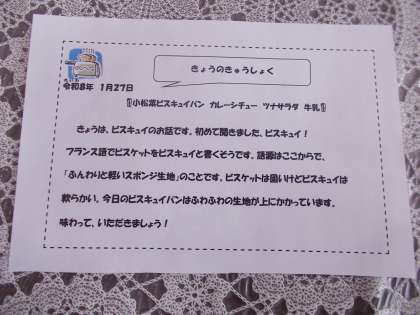 きょうのきゅうしょく
令和8年 1月27日
〖小松菜ビスキュイパン カレーシチュー ツナサラダ 牛乳〗
きょうは、ビスキュイのお話です。初めて聞きました、ビスキュイ！
フランス語でビスケットをビスキュイと書くそうです。語源はここからで、
「ふんわりと軽いスポンジ生地」のことです。ビスケットは固いけどビスキュイは
軟らかい。今日のビスキュイパンはふわふわの生地が上にかかっています。
味わって、いただきましょう！